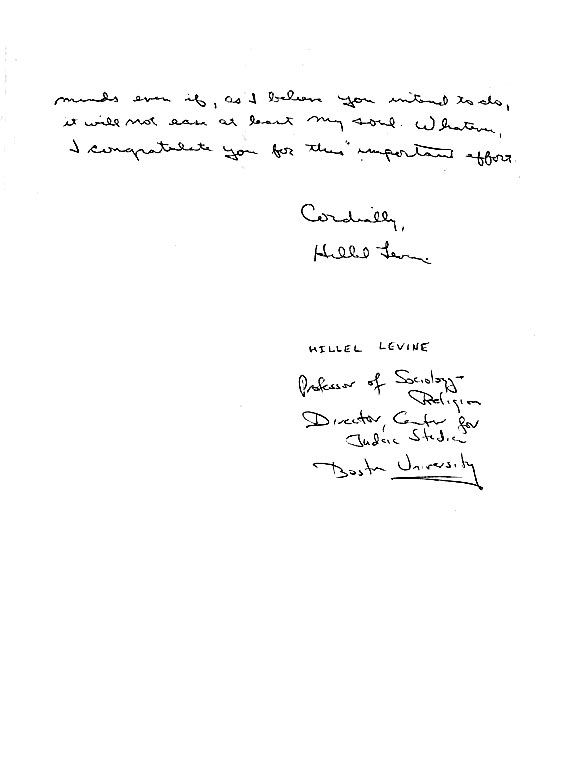 minds even if, as I believe you intend to do,
it will not ease at least my soul. Whatever,
I congratulate you for this important effort.
Cordially,
Hillel Levine
HILLEL LEVINE
Professor of Sociology -
Religion
Director, Center for
Judaic Studies
Boston University